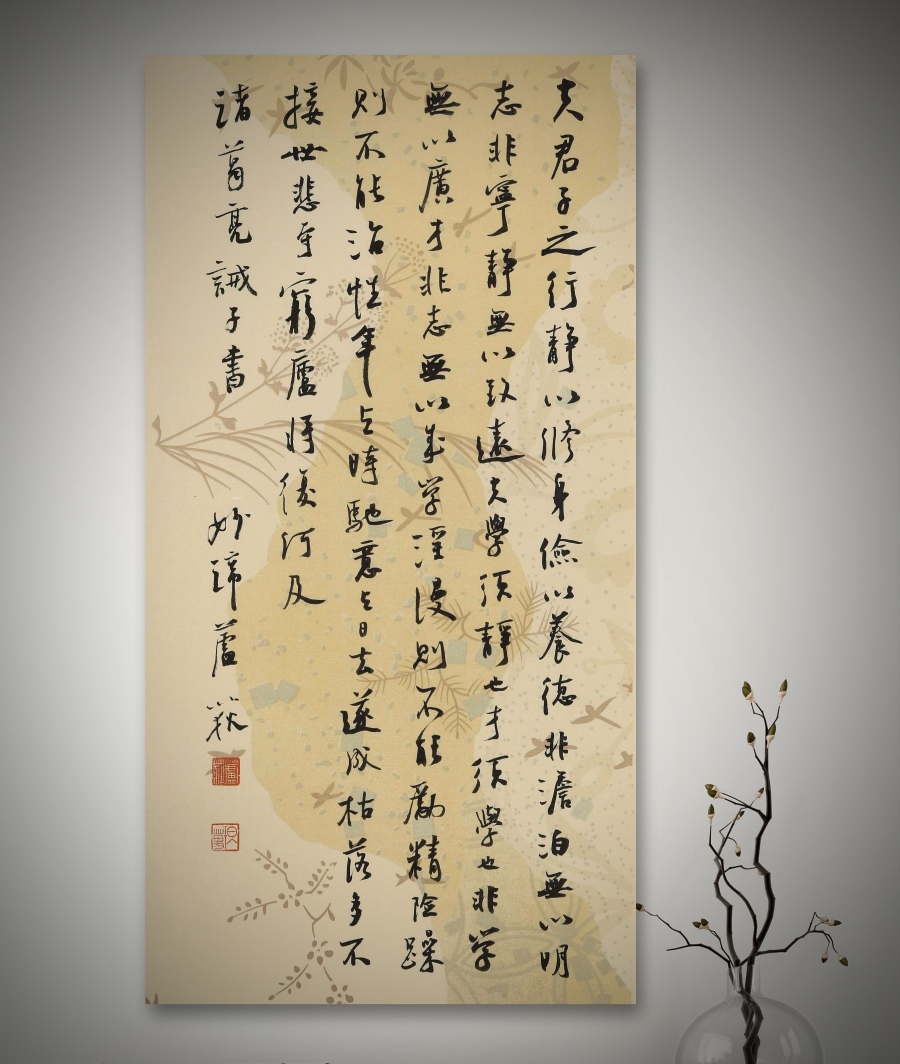 夫君子之行靜以修身儉以養德非澹泊無以明
志非寧靜無以致遠夫學須靜也才須學也非学
無以廣才非志無以成学淫漫則不能勵精險躁
則不能治性年与時馳意与日去遂成枯落多不
接世悲守窮廬將復何及
諸葛亮誡子書 妙 蘆